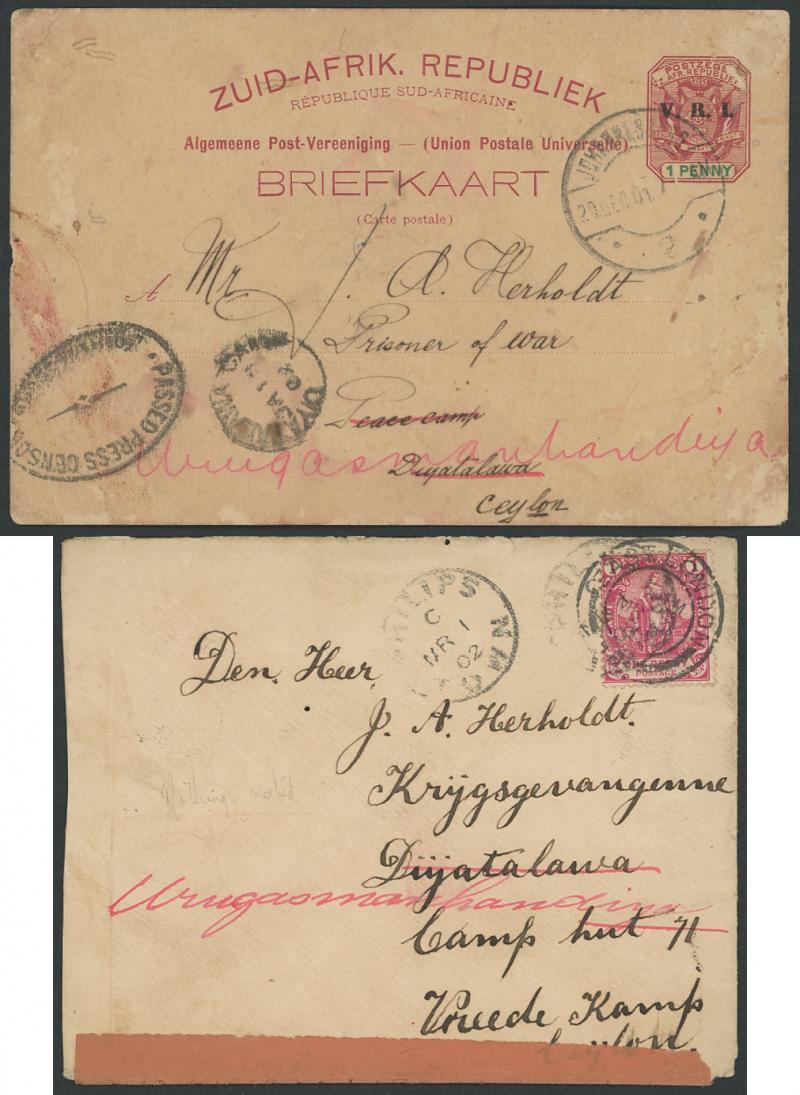 ZUID-AFRIK. REPUBLIEK
RÉPUBLIQUE SUD-AFRICAINE
Algemeene Post-Vereeniging — (Union Postale Universelle)
BRIEFKAART
(Carte postale)
POSTZEGEL
Z. AFR. REPUBLIEK
V. R. I.
1 PENNY
JOHANNES
20.DEC.01.
2
A Mr J. A. Herholdt
Prisoner of war
Peace camp
Urugasmanhandiya
Diyatalawa
Ceylon
PASSED PRESS CENSOR
DIYATALAWA CAMP
JA
02
PHILIPS
C
MR 1
02
ONE PENNY
POSTAGE
Den. Heer,
J. A. Herholdt.
Krijgsgevangenne
Nothing noted
Diyatalawa
Urugasmanhandiya
Camp hut 71
Vreede Kamp
Ceijlon.